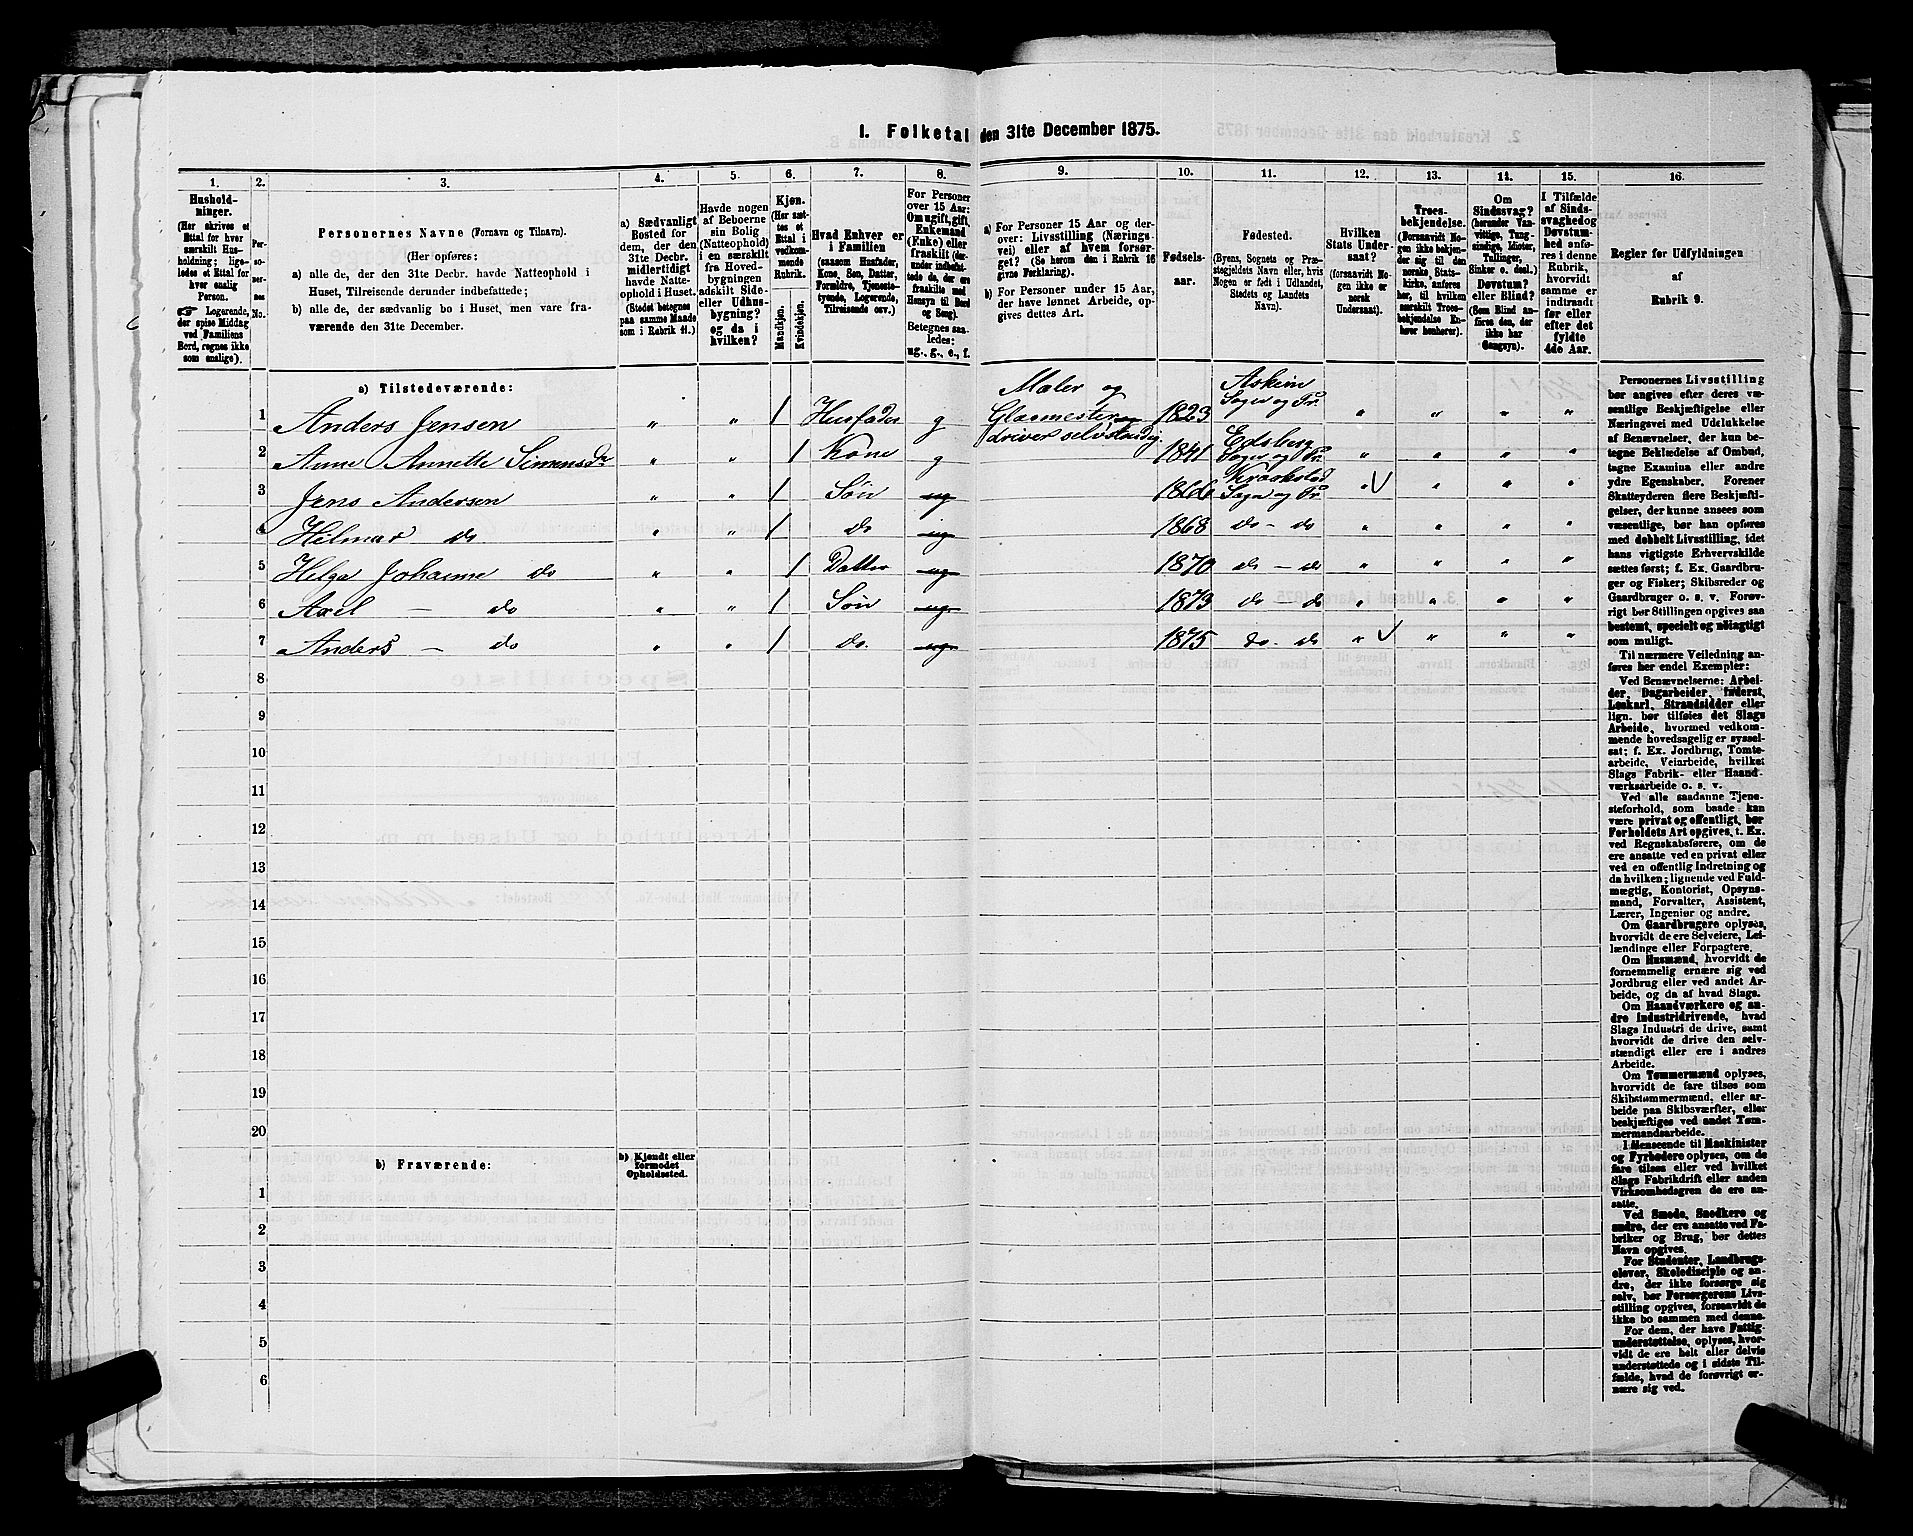 I. Folketal den 31te December 1875.
1.
2.
3.
4.
5.
6.
7.
8.
9.
10.
11.
12.
13.
14.
15.
16.
Husholdninger.
(Her skrives et
Ettal for hver
særskilt Husholdning;
ligeledes
et Ettal for
hver enslig
Person.
☛ Logerende,
der spise Middag
ved Familiens
Bord, regnes ikke
som enslige).
Personernes
No.
Personernes Navne (Fornavn og Tilnavn).
(Her opføres:
a) alle de, der den 31te Decbr. havde Natteophold i
Huset, Tilreisende derunder indbefattede;
b) alle de, der sædvanlig bo i Huset, men vare fraværende
den 31te December.
a) Sædvanligt
Bosted for
dem, der den
31te Decbr.
midlertidigt
havde Natteophold
i Huset.
(Stedet betegnes
paa samme Maade
som i Rubrik 11.)
Havde nogen
af Beboerne
sin Bolig
(Natteophold)
i en særskilt
fra Hovedbygningen
adskilt Side-
eller Udhusbygning?
og da i
hvilken?
Kjøn.
(Her sættes
et Ettal i
vedkommende
Rubrik.
Mandkjøn.
Kvindekjøn.
Hvad Enhver er
i Familien
(saasom Husfader,
Kone, Søn, Datter,
Forældre, Tjenestetyende,
Logerende,
Tilreisende osv.)
For Personer
over 15 Aar:
Om ugift, gift,
Enkemand
(Enke) eller
fraskilt (derunder
indbefattede
de, der ere
fraskilte med
Hensyn til Bord
og Seng).
Betegnes saaledes:
ug., g., e., f.
a) For Personer 15 Aar og derover:
Livsstilling (Næringsvei)
eller af hvem forsørget?
(Se herom den i Rubrik 16
givne Forklaring).
b) For Personer under 15 Aar,
der have lønnet Arbeide, opgives
dettes Art.
Fødselsaar.
Fødested.
(Byens, Sognets og Præstegjeldets
Navn eller, hvis
Nogen er født i Udlandet,
Stedets og Landets
Navn).
Hvilken
Stats Undersaat?
(forsaavidt Nogen
ikke er
norsk
Undersaat).
Troesbekjendelse.
(Forsaavidt Nogen
ikke bekjender
sig til den
norske Statskirke,
anføres
her, til hvilken
særskilt Troesbekjendelse
Enhver
henhører).
Om
Sindssvag?
(herunder Vanvittige,
Tungsindige,
Idioter,
Tullinger,
Sinker o. desl.)
Døvstum?
eller Blind?
(Som Blind anføres
den, der
ikke har
Gangsyn).
I Tilfælde
af Sindssvaghed
og
Døvstumhed
anføres
i denne
Rubrik,
hvorvidt
samme er
indtraadt
før eller
efter det
fyldte
4de Aar.
Regler for Udfyldningen
af
Rubrik 9.
a) Tilstedeværende:
1 Anders Jensen " " 1 Husfader g Maler og Glasmester driver selvstændig 1823 Askim Sogn og Pr. " " " "
2 Anne Annette Simensdr " " 1 Kone g 1841 Edsberg Sogn og Pr. " " " "
3 Jens Andersen " " 1 Søn ug 1866 Kraakstad Sogn og Pr. " " " "
4 Hilmar do " " 1 do ug 1868 do - do " " " "
5 Helga Johanne do " " 1 Datter ug 1870 do - do " " " "
6 Axel - do " " 1 Søn ug 1873 do - do " " " "
7 Anders - do " " 1 do. ug 1875 do - do " " " "
8
9
10
11
12
13
14
15
16
17
18
19
20
b) Fraværende:
b) Kjendt eller
formodet
Opholdssted.
1
2
3
4
5
6
Personernes Livsstilling
bør angives efter deres væsentlige
Beskjæftigelse eller
Næringsvei med Udelukkelse
af Benævnelser, der kun betegne
Beklædelse af Ombud,
tagne Examina eller andre
ydre Egenskaber. Forener
Skatteyderen flere Beskjæftigelser,
der kunne ansees som
væsentlige, bør han opføres
med dobbelt Livsstilling, idet
hans vigtigste Erhvervskilde
sættes først; f. Ex. Gaardbruger
og Fisker; Skibsreder og
Gaardbruger o. s. v. Forøvrigt
bør Stillingen opgives saa
bestemt, specielt og nøiagtigt
som muligt.
Til nærmere Veiledning anføres
her endel Exempler:
Ved Benævnelserne: Arbeider,
Dagarbeider, Inderst,
Løskarl, Strandsidder eller
lign. bør tilføies det Slags
Arbeide, hvormed vedkommende
hovedsagelig er sysselsat;
f. Ex. Jordbrug, Tomtearbeide,
Veiarbeide, hvilket
Slags Fabrik- eller Haandværksarbeide
o. s. v.
Ved alle saadanne Tjenesteforhold,
som baade kan
være privat og offentligt, bør
Forholdets Art opgives, t. Ex.
ved Regnskabsførere, om de
ere ansatte ved en privat eller
ved en offentlig Indretning og
da hvilken; lignende ved Fuldmægtig,
Kontorist, Opsynsmand,
Forvalter, Assistent,
Lærer, Ingeniør og andre.
Om Gaardbrugere oplyses,
hvorvidt de ere Selveiere, Leilændinge
eller Forpagtere.
Om Husmænd, hvorvidt de
fornemmelig ernære sig ved
Jordbrug eller ved andet Arbeide,
og da af hvad Slags.
Om Haandværkere og andre
Industridrivende, hvad
Slags Industri de drive, samt
hvorvidt de drive den selvstændigt
eller ere i andres
Arbeide.
Om Tømmermænd oplyses,
hvorvidt de fare tilsøs som
Skibstømmermænd, eller arbeide
paa Skibsværfter, eller
beskjæftiges ved andet Tømmermandsarbeide.
I Henseende til Maskinister
og Fyrbødere oplyses, om de
fare tilsøs eller ved hvilket
Slags Fabrikdrift eller anden
Virksomhedsgren de ere ansatte.
Ved Smede, Snedkere og
andre, der ere ansatte ved Fabriker
og Brug, bør dettes
Navn opgives.
For Studenter, Landbrugselever,
Skoledisciple og andre,
der ikke forsørge sig
selv, bør Forsørgerens Livsstilling
opgives, forsaavidt de
ikke bo sammen med denne.
For dem, der have Fattigunderstøttelse,
oplyses, hvorvidt
de ere helt eller delvis
understøttede og i sidste Tilfælde,
hvad de forøvrigt ernære
sig ved.